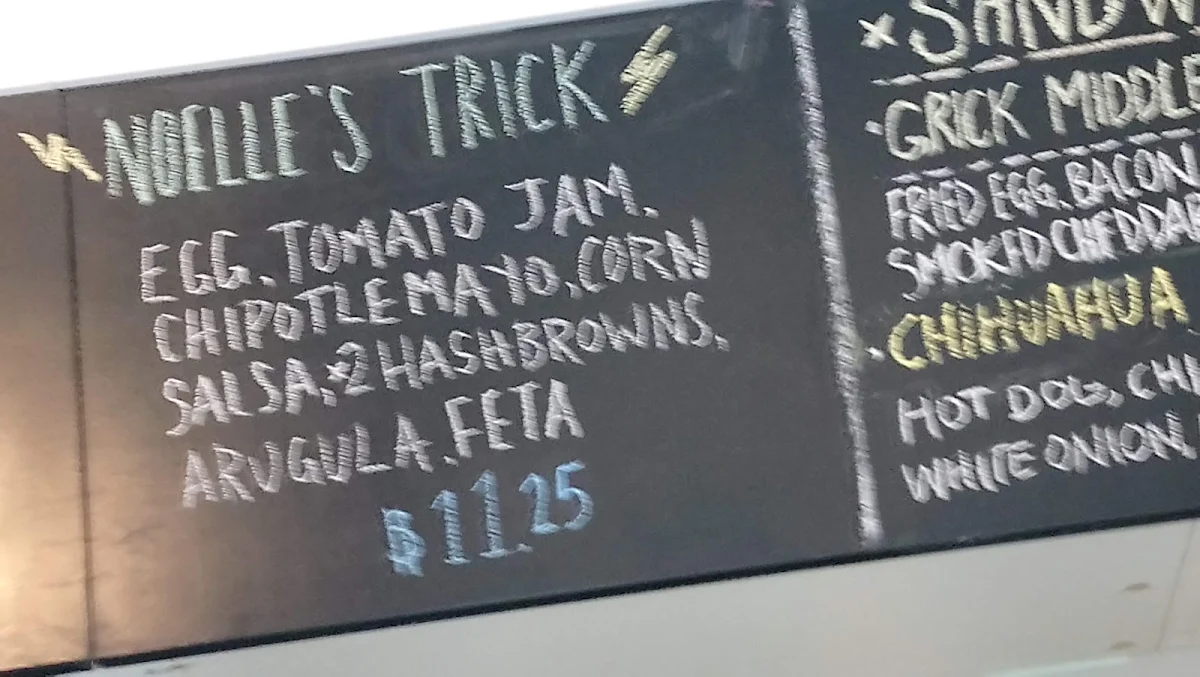 NOELLE'S TRICK
EGG, TOMATO JAM,
CHIPOTLE MAYO, CORN
SALSA, 2 HASHBROWNS,
ARUGULA, FETA
$11.25
GRICK MIDDLE
FRIED EGG, BACON
SMOKED CHEDDAR
CHIHUAHUA
HOT DOG,
WHITE ONION